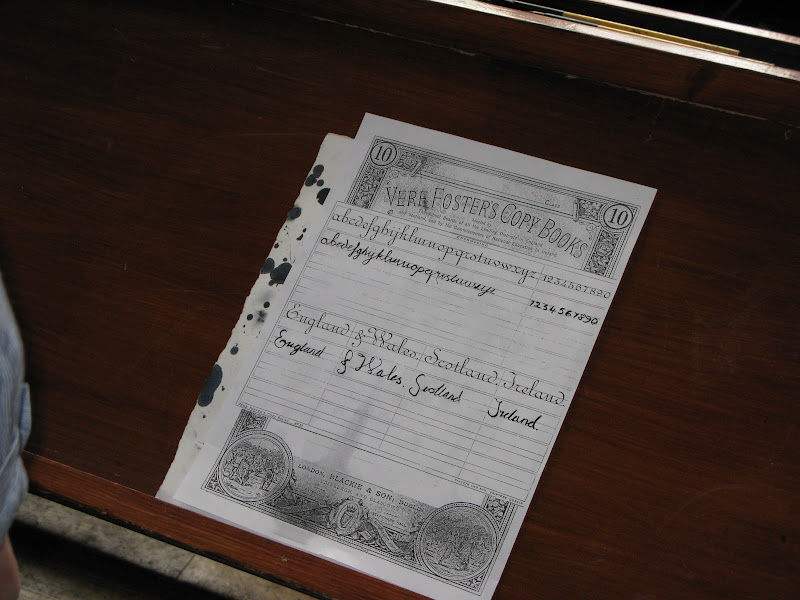 10
CLASS
10
VERE FOSTER'S COPY BOOKS
abcdefghyklmnopqrstuvwxyz 1234567890
abcdefghyklmnopqrstuvwxyz 1234567890
England & Wales, Scotland, Ireland.
England & Wales, Scotland Ireland.
LONDON, BLACKIE & SON,